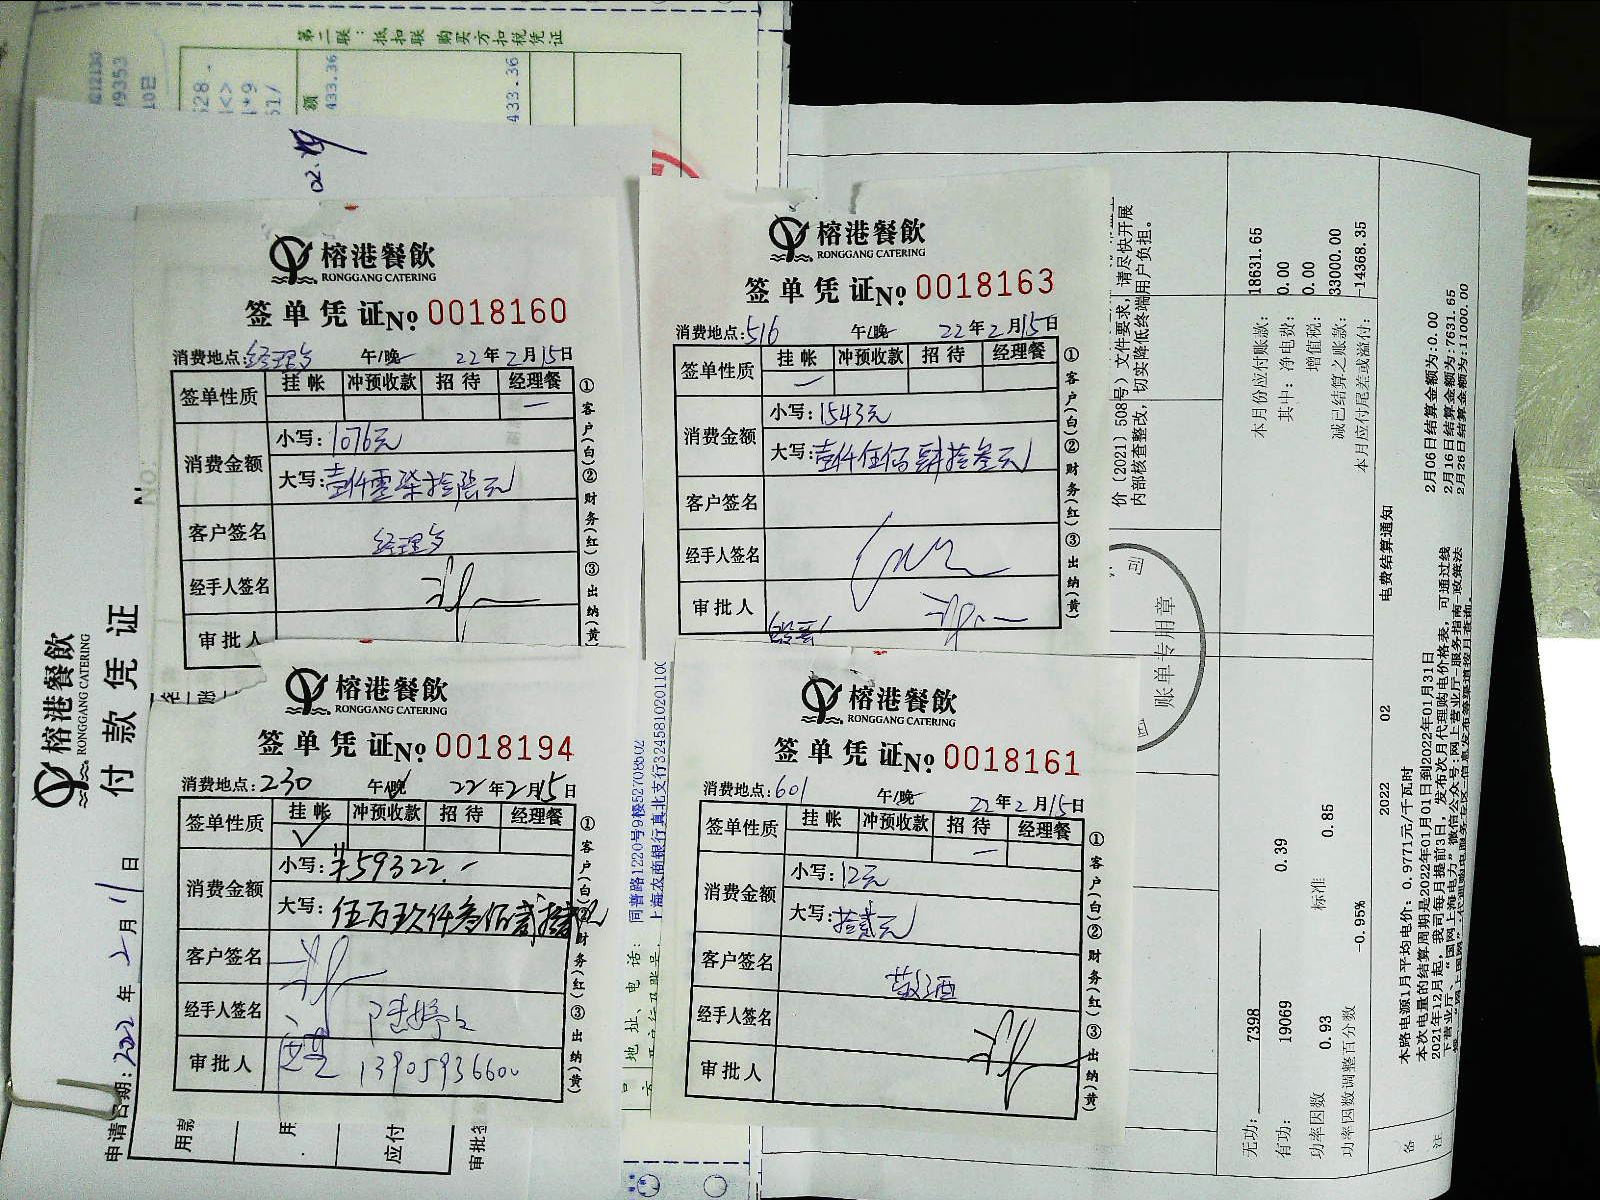 第二联：抵扣联 购买方扣税凭证
额
433.36
433.36
榕港餐飲
RONGGANG CATERING
签单凭证No. 0018160
消费地点:经理室 午/晚 22年2月15日
签单性质 挂帐 冲预收款 招待 经理餐
消费金额
小写:1076元
大写:壹仟零柒拾陆元
客户签名 经理室
经手人签名
审批人
①客户(白)②财务(红)③出纳(黄)
榕港餐飲
RONGGANG CATERING
签单凭证No. 0018163
消费地点:516 午/晚 22年2月15日
签单性质 挂帐 冲预收款 招待 经理餐
消费金额
小写:1543元
大写:壹仟伍佰肆拾叁元
客户签名
经手人签名
审批人
①客户(白)②财务(红)③出纳(黄)
榕港餐飲
RONGGANG CATERING
签单凭证No. 0018194
消费地点:230 午/晚 22年2月15日
签单性质 挂帐 冲预收款 招待 经理餐
消费金额
小写:¥59322.-
大写:伍万玖仟叁佰贰拾贰元
客户签名
经手人签名
审批人 13905936600
①客户(白)②财务(红)③出纳(黄)
榕港餐飲
RONGGANG CATERING
签单凭证No. 0018161
消费地点:601 午/晚 22年2月15日
签单性质 挂帐 冲预收款 招待 经理餐
消费金额
小写:12元
大写:拾贰元
客户签名 敬酒
经手人签名
审批人
①客户(白)②财务(红)③出纳(黄)
榕港餐飲
RONGGANG CATERING
付款凭证
申请日期:2022年2月11日
用票
应付
地址、电话：同普路1220号9楼52708602
上海农商银行真北支行
价〔2021〕508号）文件要求，请尽快开展
内部核查整改，切实降低终端用户负担。
账单专用章
本月份应付账款: 18631.65
其中: 净电费: 0.00
增值税: 0.00
减已结算之账款: 33000.00
本月应付尾差或溢付: -14368.35
无功: 7398
有功: 19069 0.39
功率因数 0.93 标准 0.85
功率因数调整百分数 -0.95%
2022 02 电费结算通知
备注
本路电源1月平均电价: 0.9771元/千瓦时
本次电量的结算周期是2022年01月01日到2022年01月31日
2021年12月起，我司每月提前3日，发布次月代理购电价格表，可通过线
下营业厅、“国网上海电力”微信公众号:网上营业厅-服务指南-政策法
2月06日结算金额为:0.00
2月16日结算金额为:7631.65
2月26日结算金额为:11000.00